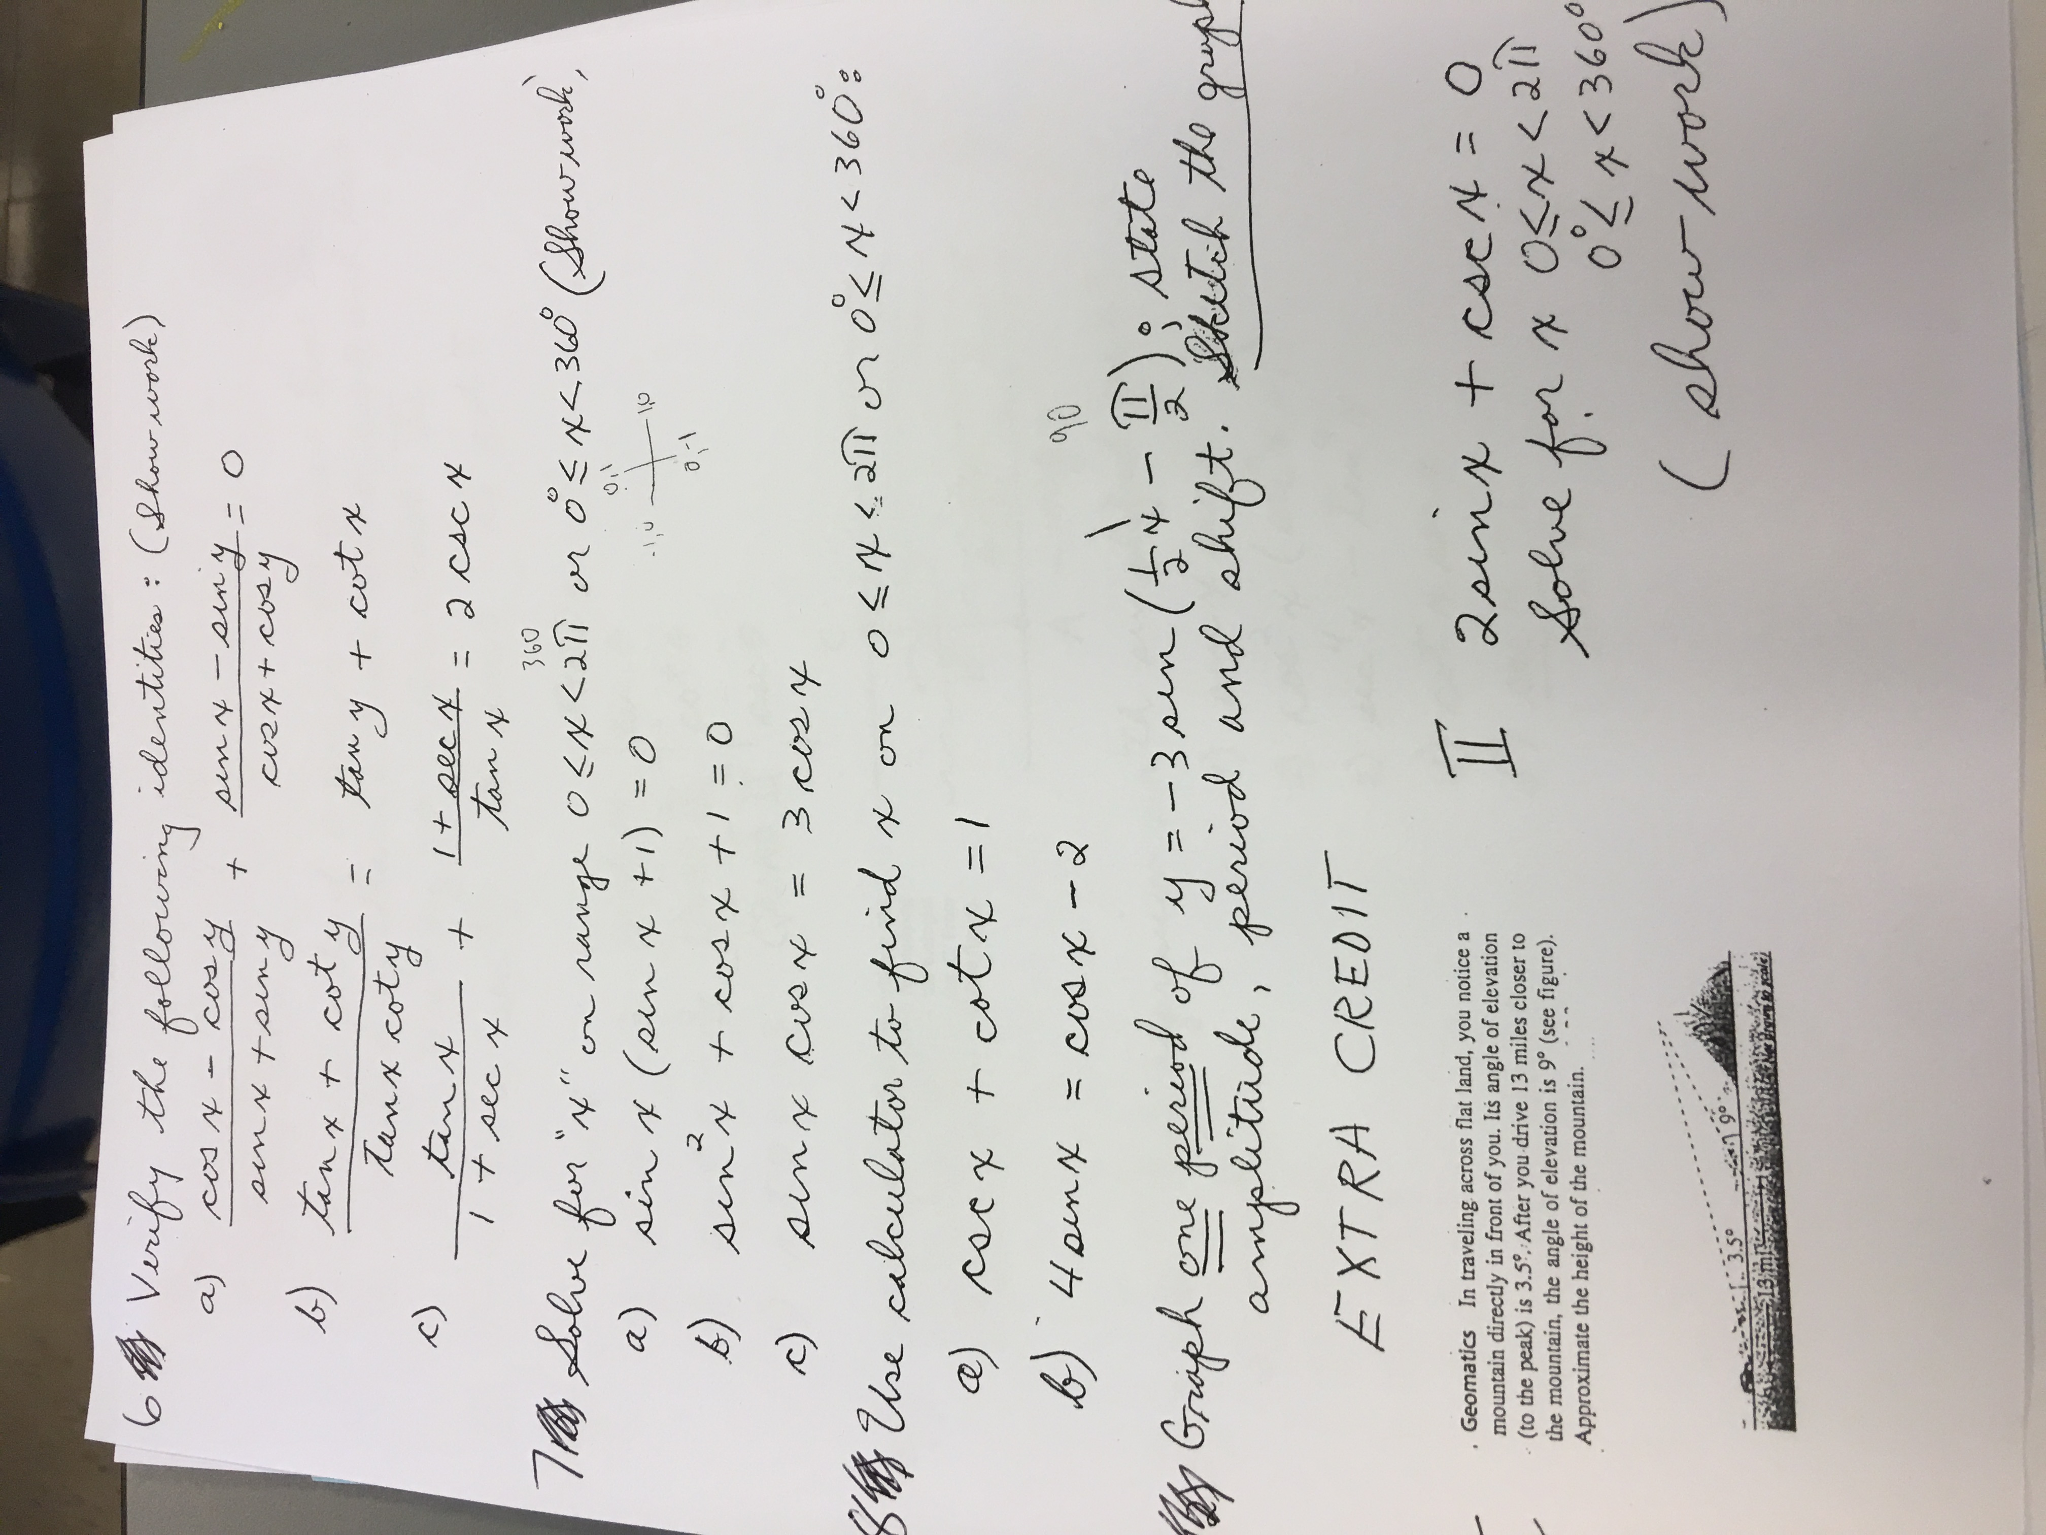 6 Verify the following identities: (Show work)
a) cos x - cos y / sin x + sin y + sin x - sin y / cos x + cos y = 0
b) tan x + cot y / tan x cot y = tan y + cot x
c) tan x / 1 + sec x + 1 + sec x / tan x = 2 csc x
360
7 Solve for "x" on range 0 ≤ x < 2π or 0° ≤ x < 360° (Show work)
a) sin x (sin x + 1) = 0
0,1
-1,0 1,0
0,-1
b) sin² x + cos x + 1 = 0
c) sin x cos x = 3 cos x
8 Use calculator to find x on 0 ≤ x ≤ 2π or 0° ≤ x < 360°:
a) csc x + cot x = 1
b) 4 sin x = cos x - 2
90
Graph one period of y = -3 sin (½x - π/2); state
amplitude, period and shift. Sketch the graph
EXTRA CREDIT
. Geomatics In traveling across flat land, you notice a
mountain directly in front of you. Its angle of elevation
(to the peak) is 3.5°. After you drive 13 miles closer to
the mountain, the angle of elevation is 9° (see figure).
Approximate the height of the mountain.
3.5° 9°
13 mi
II 2 sin x + csc x = 0
Solve for x 0 ≤ x < 2π
0° ≤ x < 360°
(show work)